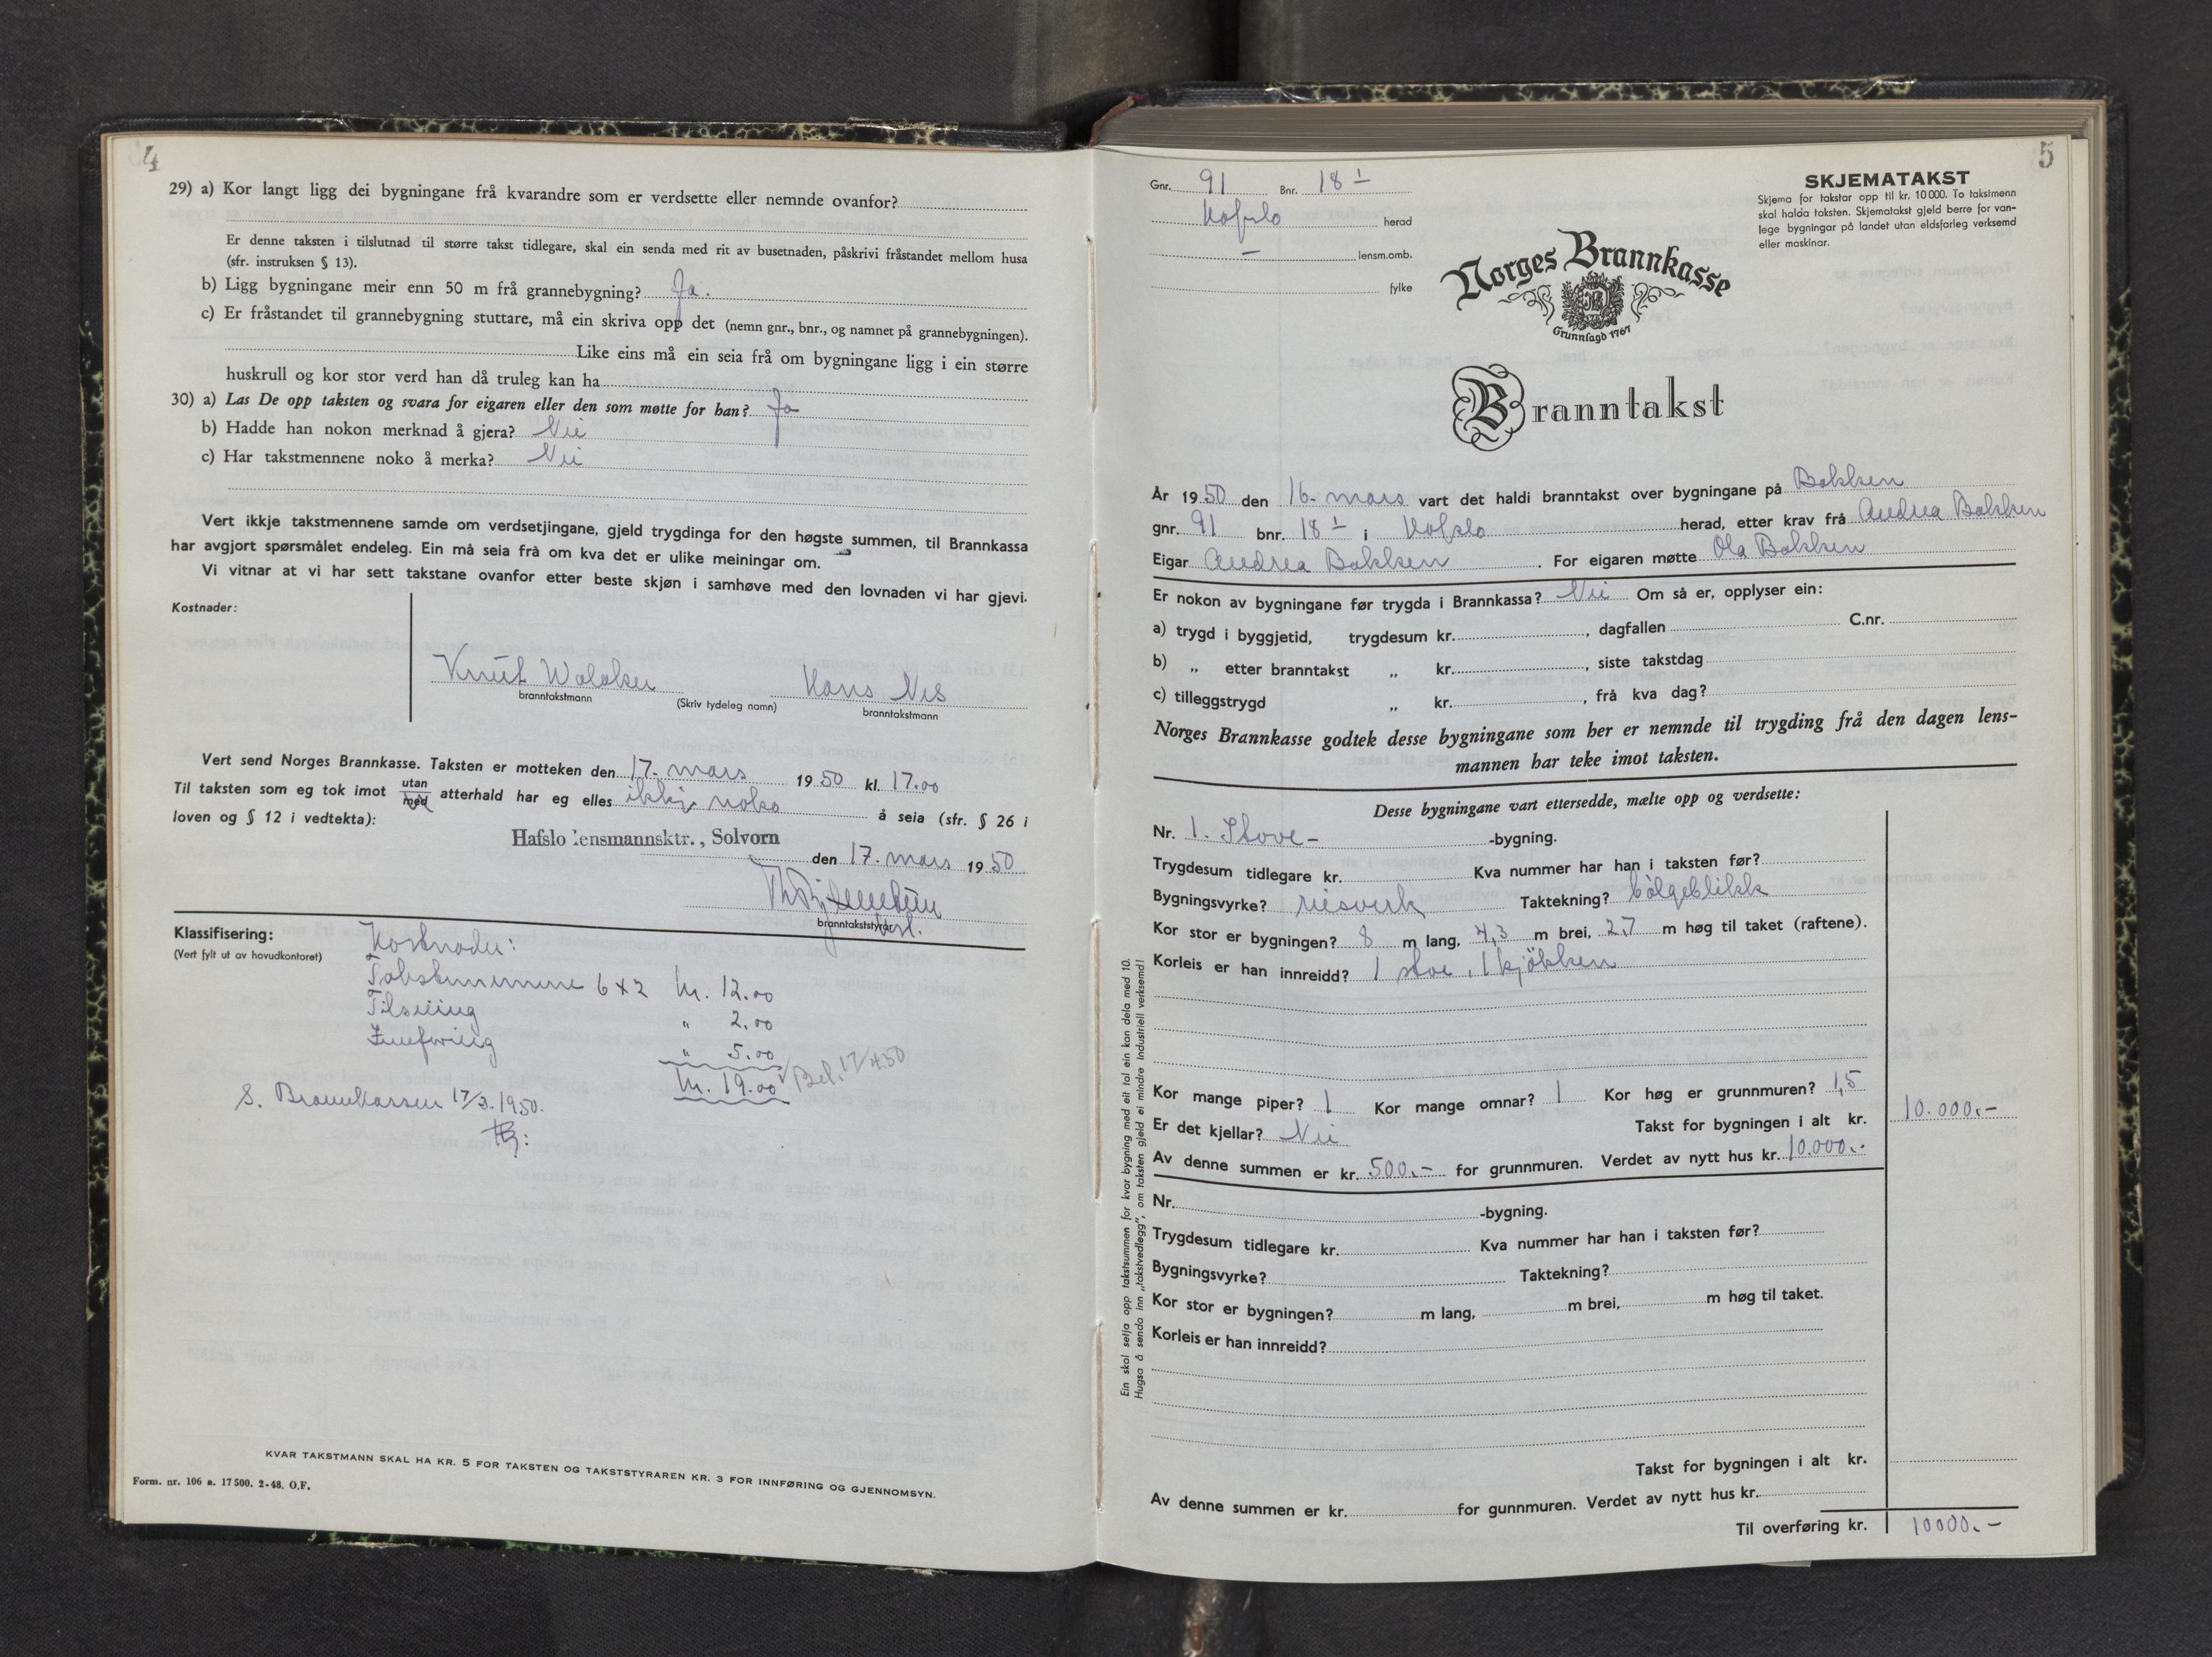 4
29) a) Kor langt ligg dei bygningane frå kvarandre som er verdsette eller nemnde ovanfor?
Er denne taksten i tilslutnad til større takst tidlegare, skal ein senda med rit av busetnaden, påskrivi fråstandet mellom husa
(sfr. instruksen § 13).
b) Ligg bygningane meir enn 50 m frå grannebygning? Ja.
c) Er fråstandet til grannebygning stuttare, må ein skriva opp det (nemn gnr., bnr., og namnet på grannebygningen).
Like eins må ein seia frå om bygningane ligg i ein større
huskrull og kor stor verd han då truleg kan ha
30) a) Las De opp taksten og svara for eigaren eller den som møtte for han? Ja
b) Hadde han nokon merknad å gjera? Nei
c) Har takstmennene noko å merka? Nei
Vert ikkje takstmennene samde om verdsetjingane, gjeld trygdinga for den høgste summen, til Brannkassa
har avgjort spørsmålet endeleg. Ein må seia frå om kva det er ulike meiningar om.
Vi vitnar at vi har sett takstane ovanfor etter beste skjøn i samhøve med den lovnaden vi har gjevi.
Kostnader:
Knut Walaker Hans Nes
branntakstmann (Skriv tydeleg namn) branntakstmann
Vert send Norges Brannkasse. Taksten er motteken den 17. mars 1950 kl. 17.00
Til taksten som eg tok imot utan/med atterhald har eg elles ikkje noko å seia (sfr. § 26 i
loven og § 12 i vedtekta):
Hafslo lensmannsktr., Solvorn
den 17. mars 1950
branntakststyrar
Klassifisering:
(Vert fylt ut av hovudkontoret)
Kostnader:
Takstmennene 6 x 2 kr. 12.00
Tilseiing " 2.00
Innføring " 5.00
kr. 19.00 Bet. 17/4.50
S. Brannkassen 17/3.1950.
KVAR TAKSTMANN SKAL HA KR. 5 FOR TAKSTEN OG TAKSTSTYRAREN KR. 3 FOR INNFØRING OG GJENNOMSYN.
Form. nr. 106 a. 17500. 2-48. O.F.
5
Gnr. 91 Bnr. 18 1
Hafslo herad
— lensm.omb.
fylke
SKJEMATAKST
Skjema for takstar opp til kr. 10000. To takstmenn
skal halda taksten. Skjematakst gjeld berre for van-
lege bygningar på landet utan eldsfarleg verksemd
eller maskinar.
Norges Brannkasse
Grunnlagd 1767
Branntakst
År 1950 den 16. mars vart det haldi branntakst over bygningane på Bakken
gnr. 91 bnr. 18 1 i Hafslo herad, etter krav frå Andrea Bakken
Eigar Andrea Bakken. For eigaren møtte Ola Bakken
Er nokon av bygningane før trygda i Brannkassa? Nei Om så er, opplyser ein:
a) trygd i byggjetid, trygdesum kr. , dagfallen C.nr.
b) „ etter branntakst „ kr. , siste takstdag
c) tilleggstrygd „ kr. , frå kva dag?
Norges Brannkasse godtek desse bygningane som her er nemnde til trygding frå den dagen lens-
mannen har teke imot taksten.
Desse bygningane vart ettersedde, mælte opp og verdsette:
Nr. 1. Stove- -bygning.
Trygdesum tidlegare kr. Kva nummer har han i taksten før?
Bygningsvyrke? reisverk Taktekning? bølgeblikk
Kor stor er bygningen? 8 m lang, 4,3 m brei, 2,7 m høg til taket (raftene).
Korleis er han innreidd? 1 stove, 1 kjøkken
Kor mange piper? 1 Kor mange omnar? 1 Kor høg er grunnmuren? 1,5
Er det kjellar? Nei Takst for bygningen i alt kr. 10.000.-
Av denne summen er kr. 500.- for grunnmuren. Verdet av nytt hus kr. 10.000.-
Nr. -bygning.
Trygdesum tidlegare kr. Kva nummer har han i taksten før?
Bygningsvyrke? Taktekning?
Kor stor er bygningen? m lang, m brei, m høg til taket.
Korleis er han innreidd?
Takst for bygningen i alt kr.
Av denne summen er kr. for gunnmuren. Verdet av nytt hus kr.
Til overføring kr. 10000.-
Ein skal setja opp takstsummen for kvar bygning med eit tal ein kan dela med 10.
Hugsa å senda inn „takstvedlegg", om taksten gjeld ei mindre industriell verksemd!